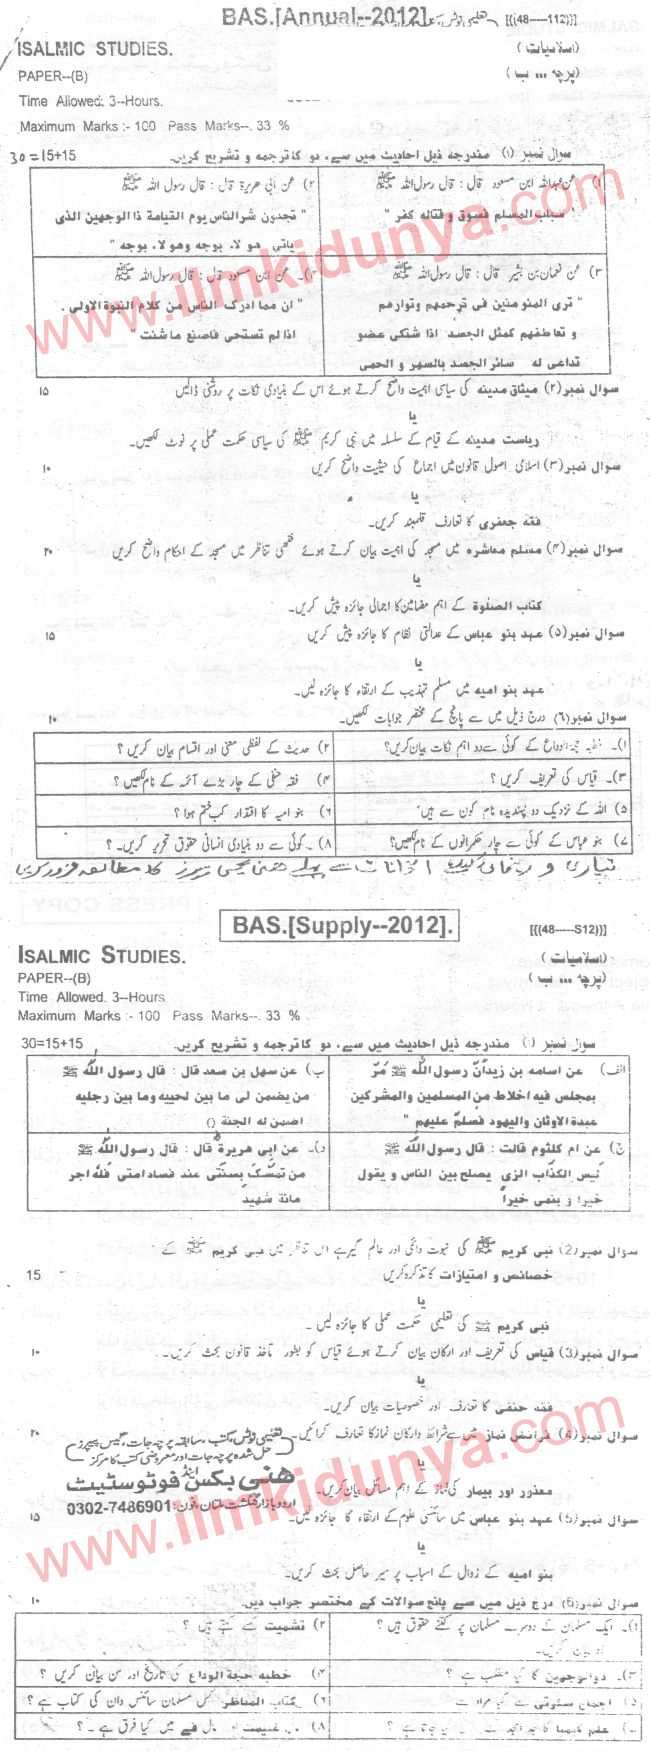 BAS.[Annual--2012].
[{(48-----112)}]
ISALMIC STUDIES.
(اسلامیات)
PAPER--(B)
(پرچہ ... ب)
Time Allowed: 3--Hours.
Maximum Marks :- 100 Pass Marks--. 33 %
سوال نمبر (۱) مندرجہ ذیل احادیث میں سے، دو کا ترجمہ و تشریح کریں. 30=15+15
۱) عن عبداللہ ابن مسعود قال : قال رسول اللہ ﷺ
" سباب المسلم فسوق و قتالہ کفر "
۲) عن أبی ھریرۃ قال : قال رسول اللہ ﷺ
" تجدون شرالناس یوم القیامۃ ذا الوجھین الذی
یاتی ھولاء بوجہ وھولاء بوجہ "
۳) عن نعمان بن بشیر قال : قال رسول اللہ ﷺ
" تری المنومنین فی ترحمھم وتوارھم
و تعاطفھم کمثل الجسد اذا شتکی عضو
تداعی لہ سائر الجسد بالسھر و الحمی
عن ابن مسعود قال : قال رسول اللہ ﷺ
" ان مما ادرک الناس من کلام النبوۃ الاولی .
اذا لم تستحی فاصنع ما شئت "
سوال نمبر(۲) میثاق مدینہ کی سیاسی اہمیت واضح کرتے ہوئے اس کے بنیادی نکات پر روشنی ڈالیں ۱۵
یا
ریاست مدینہ کے قیام کے سلسلہ میں نبی کریم ﷺ کی سیاسی حکمت عملی پر نوٹ لکھیں۔
سوال نمبر(۳) اسلامی اصول قانون میں اجماع کی حیثیت واضح کریں ۱۰
یا
فقہ جعفری کا تعارف قلمبند کریں۔
سوال نمبر(۴) مسلم معاشرہ میں مسجد کی اہمیت بیان کرتے ہوئے فقہی تناظر میں مسجد کے احکام واضح کریں ۲۰
یا
کتاب الصلوۃ کے اہم مضامین کا اجمالی جائزہ پیش کریں۔
سوال نمبر(۵) عہد بنو عباس کے عدالتی نظام کا جائزہ پیش کریں ۱۵
یا
عہد بنو امیہ میں مسلم تہذیب کے ارتقاء کا جائزہ لیں۔
سوال نمبر(۶) درج ذیل میں سے پانچ کے مختصر جوابات لکھیں۔ ۱۰
۱)۔ خطبہ حجۃ الوداع کے کوئی سے دو اہم نکات بیان کریں؟
۲) حدیث کے لفظی معنی اور اقسام بیان کریں ؟
۳)۔ قیاس کی تعریف کریں ؟
۴) فقہ حنفی کے چار بڑے آئمہ کے نام لکھیں ؟
۵) اللہ کے نزدیک دو پسندیدہ نام کون سے ہیں
۶) بنو امیہ کا اقتدار کب ختم ہوا ؟
۷) بنو عباس کے کوئی سے چار حکمرانوں کے نام لکھیں؟
۸)۔ کوئی سے دو بنیادی انسانی حقوق تحریر کریں۔ ؟
BAS.[Supply--2012].
[{(48-----S12)}]
ISALMIC STUDIES.
(اسلامیات)
PAPER--(B)
(پرچہ ... ب)
Time Allowed. 3--Hours
Maximum Marks :- 100 Pass Marks--. 33 %
سوال نمبر (۱) مندرجہ ذیل احادیث میں سے، دو کا ترجمہ و تشریح کریں. 30=15+15
الف) عن اسامہ بن زیدأن رسول اللہ ﷺ مَرّ
بمجلس فیہ اخلاط من المسلمین والمشرکین
عبدۃ الاوثان والیھود فسلم علیھم "
ب) عن سھل بن سعد قال : قال رسول اللہ ﷺ
من یضمن لی ما بین لحییہ وما بین رجلیہ
اضمن لہ الجنۃ ()
ج) عن ام کلثوم قالت : قال رسول اللہ ﷺ
لیس الکذاب الزی یصلح بین الناس و یقول
خیرا و ینمی خیراً
د)۔ عن ابی ھریرۃ قال : قال رسول اللہ ﷺ
من تمسک بسنتی عند فساد امتی فلہ اجر
مائۃ شھید
سوال نمبر(2) نبی کریم ﷺ کی نبوت دائمی اور عالم گیر ہے اس تناظر میں نبی کریم ﷺ کے :
خصائص و امتیازات کا تذکرہ کریں 15
یا
نبی کریم ﷺ کی تعلیمی حکمت عملی کا جائزہ لیں ۔
سوال نمبر(3) قیاس کی تعریف اور ارکان بیان کرتے ہوئے قیاس کو بطور ماخذ قانون بحث کریں۔ ۱۰
یا
فقہ حنفی کا تعارف اور خصوصیات بیان کریں۔
سوال نمبر(4) فرائض نماز میں سے شرائط و ارکان نماز کا تعارف کرائیں۔ ۲۰
یا
معذور اور بیمار کی نماز کے اہم مسائل بیان کریں۔
تعلیمی نوٹس، کتب، سابقہ پرچہ جات، گیس پیپرز
حل شدہ پرچہ جات اور معروضی کتب کا مرکز
ھنی بکس اینڈ فوٹو سٹیٹ
اردو بازار گلگشت ملتان، فون: 0302-7486901
سوال نمبر(5) عہد بنو عباس میں سائنسی علوم کے ارتقاء کا جائزہ لیں۔ ۱۵
یا
بنو امیہ کے زوال کے اسباب پر سیر حاصل بحث کریں۔
سوال نمبر(6) درج ذیل میں سے پانچ سوالات کے مختصر جواب دیں۔ ۱۰
۱)۔ ایک مسلمان کے دوسرے مسلمان پر کتنے حقوق ہیں ؟
بیان کریں۔
۲) تشمیت کسے کہتے ہیں ؟
۳)۔ ذوالوجھین کا کیا مطلب ہے ؟
۴) خطبہ حجۃ الوداع کی تاریخ اور سن بیان کریں ؟
۵) اجماع سکوتی سے کیا مراد ہے
۶) کتاب المناظر کس مسلمان سائنس دان کی کتاب ہے ؟
۸) مال غنیمت اور مال فے میں کیا فرق ہے ۔ ؟
www.ilmkidunya.com
www.ilmkidunya.com